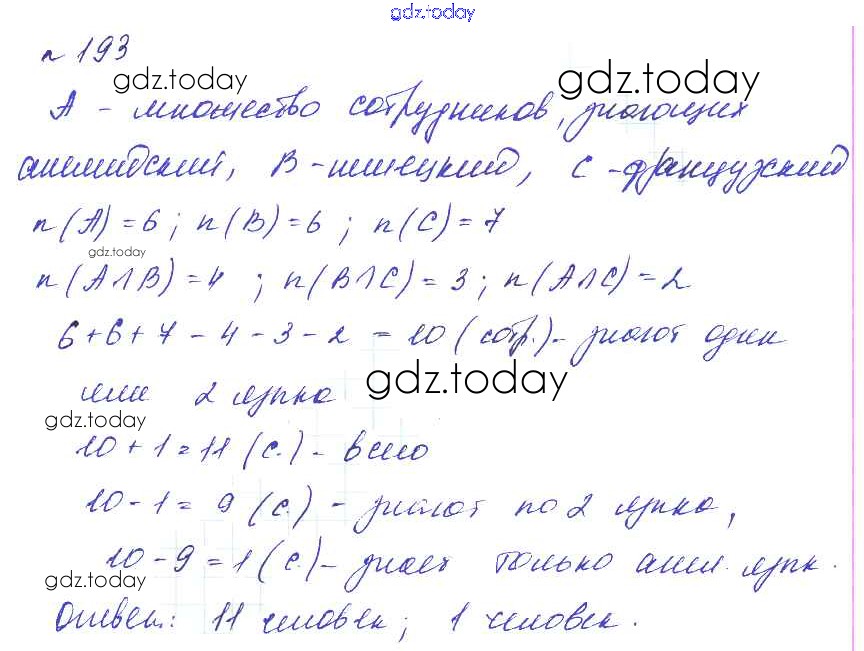 gdz.today
n 193
gdz.today gdz.today
A - множество сотрудников, знающих
английский, B - немецкий, C - французский
n(A) = 6; n(B) = 6; n(C) = 7
gdz.today
n(A∩B) = 4; n(B∩C) = 3; n(A∩C) = 2
6+6+7-4-3-2 = 10 (сотр.) - знают один
или 2 языка
gdz.today
gdz.today
10+1=11 (с.) - всего
10-1= 9 (с.) - знают по 2 языка,
10-9=1 (с.) - знает только англ. язык.
gdz.today
Ответ: 11 человек; 1 человек.